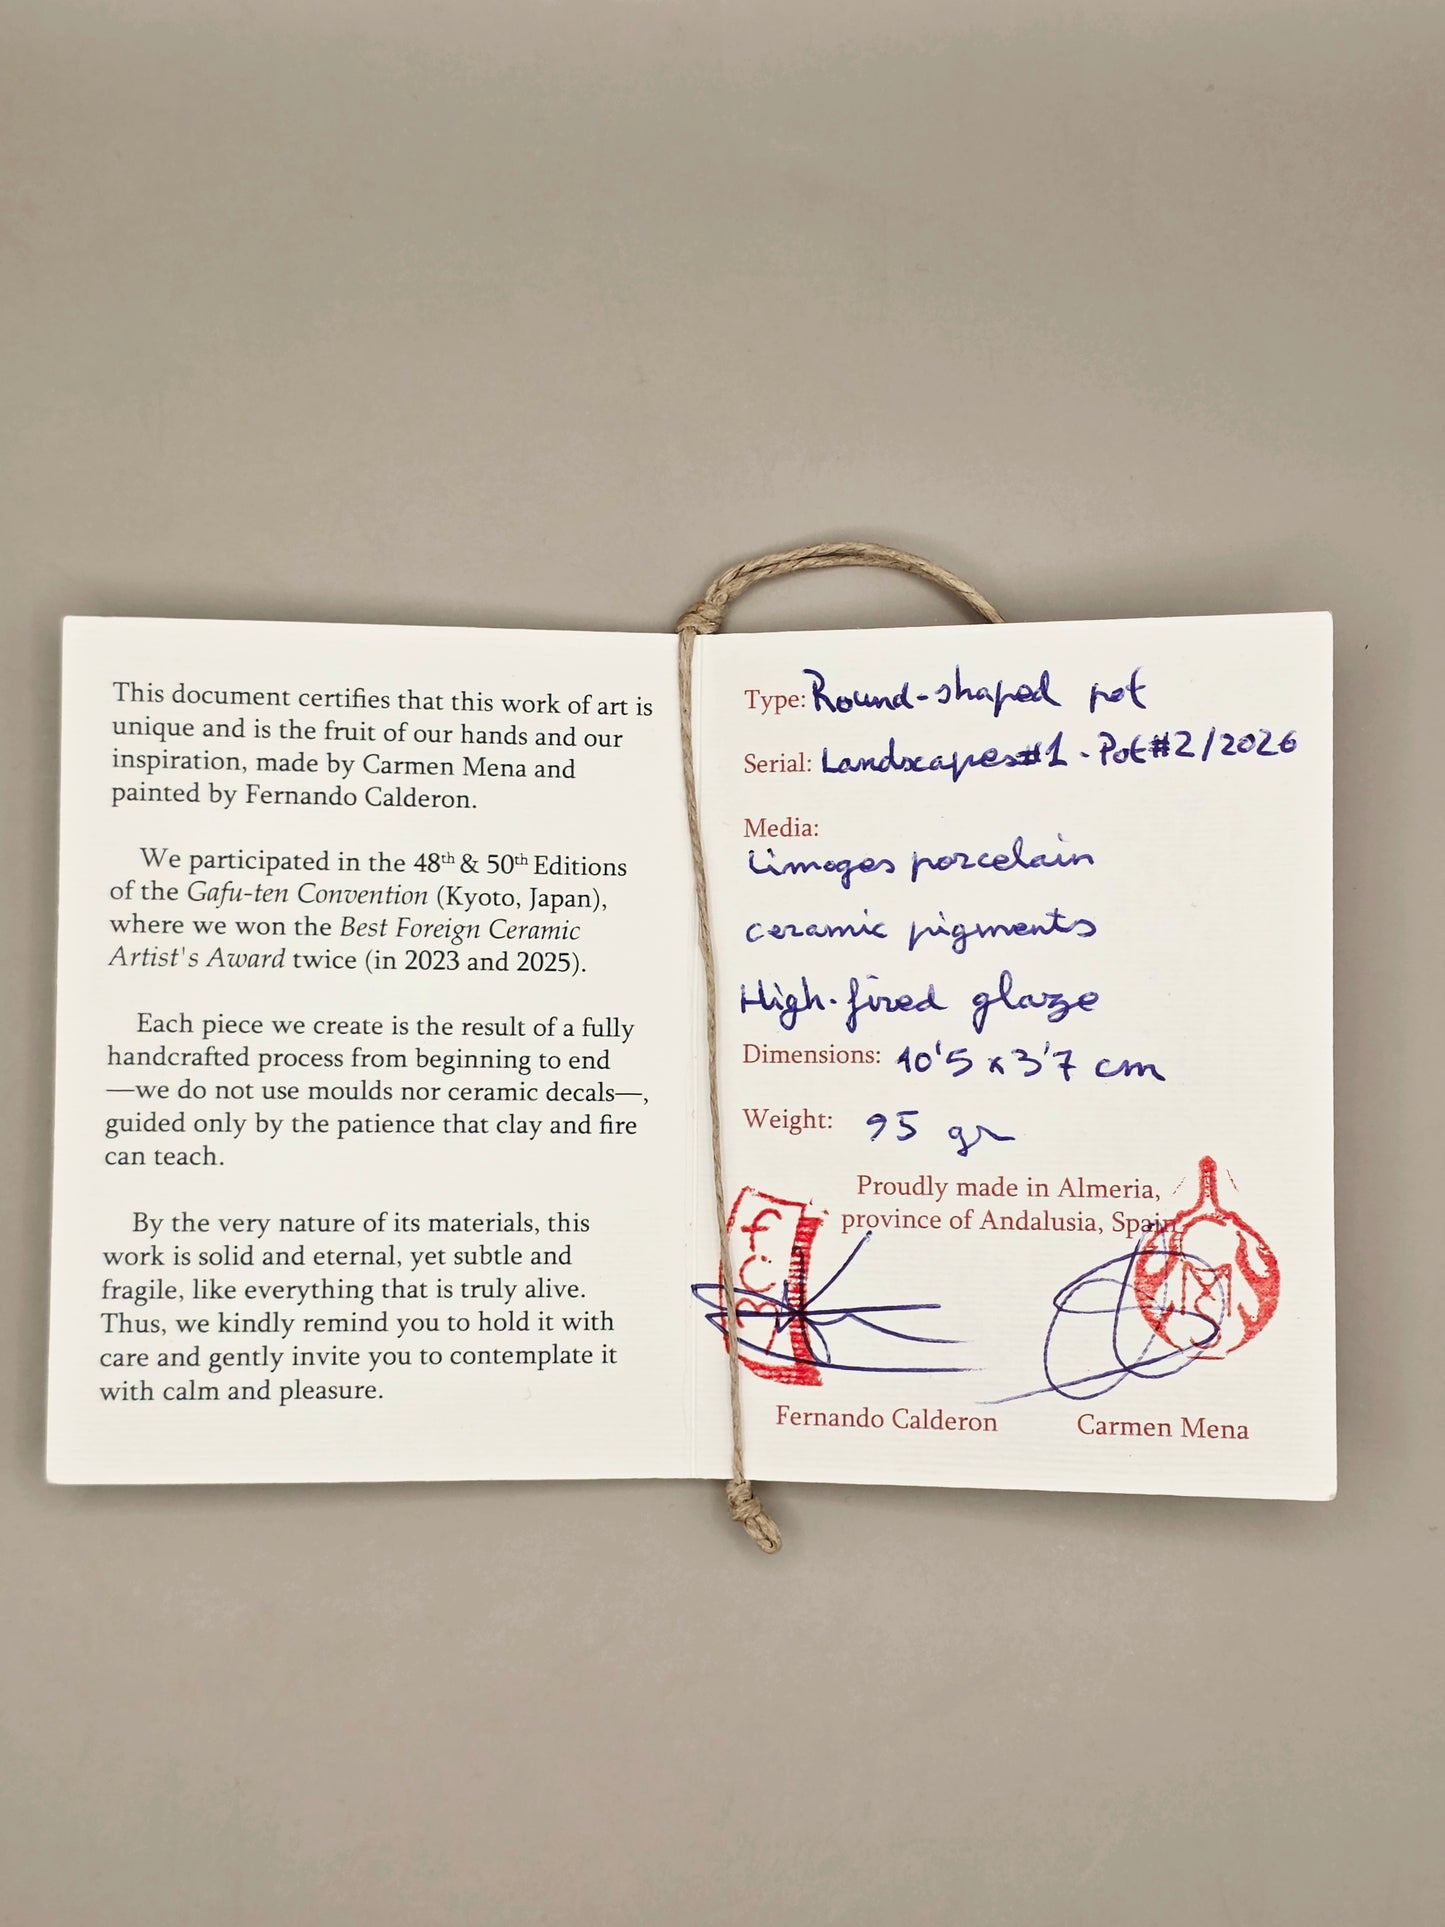 This document certifies that this work of art is
unique and is the fruit of our hands and our
inspiration, made by Carmen Mena and
painted by Fernando Calderon.
We participated in the 48th & 50th Editions
of the Gafu-ten Convention (Kyoto, Japan),
where we won the Best Foreign Ceramic
Artist's Award twice (in 2023 and 2025).
Each piece we create is the result of a fully
handcrafted process from beginning to end
—we do not use moulds nor ceramic decals—,
guided only by the patience that clay and fire
can teach.
By the very nature of its materials, this
work is solid and eternal, yet subtle and
fragile, like everything that is truly alive.
Thus, we kindly remind you to hold it with
care and gently invite you to contemplate it
with calm and pleasure.
Type: Round-shaped pot
Serial: Landscapes#1 - Pot#2/2026
Media:
Limoges porcelain
ceramic pigments
High-fired glaze
Dimensions: 10'5 x 3'7 cm
Weight: 95 gr
Proudly made in Almeria,
province of Andalusia, Spain
Fernando Calderon
Carmen Mena